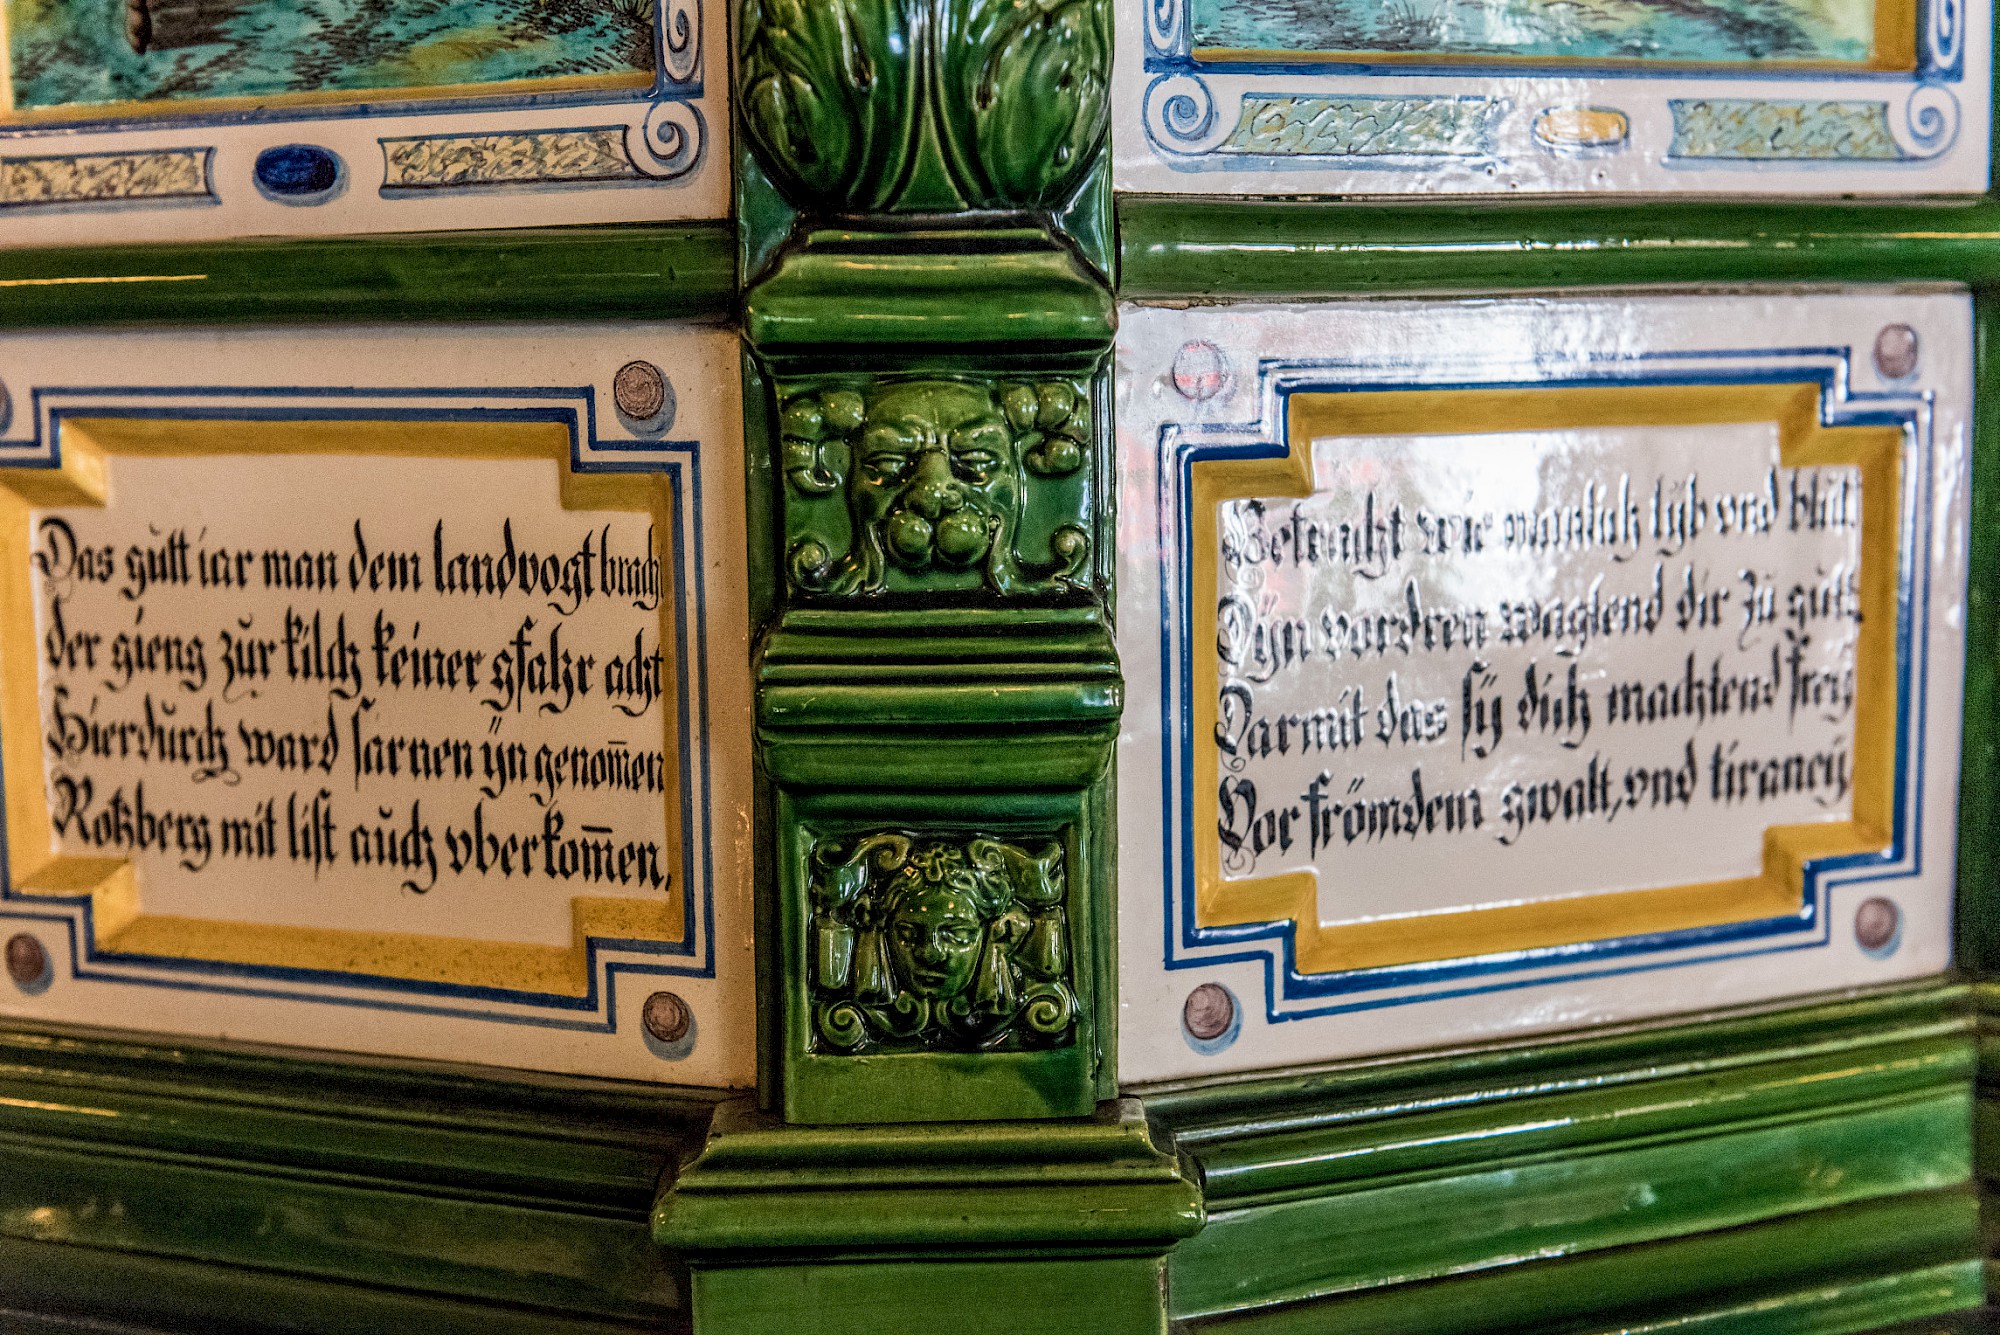 Das gůtt iar man dem landvogt bracht
der gieng zůr kilch keiner gfahr acht
Hierdůrch ward sarnen ÿn genom̄en
Rotzberg mit list aůch vberkom̄en.
Betracht wie manlich lÿb vnd blůt
Dÿn vordren wagtend dir zů gůtt
Darmit das sÿ dich machtend freÿ
Vor frömdem gwalt, vnd tiraneÿ